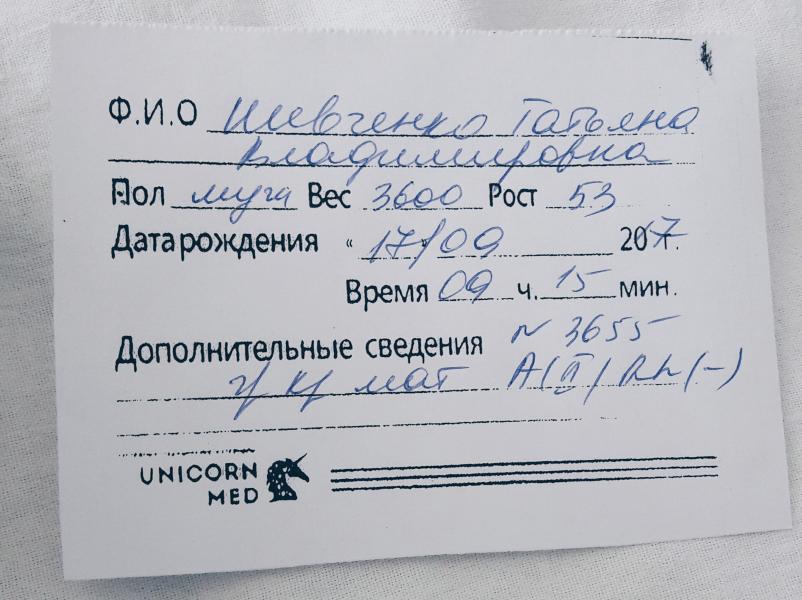 Ф.И.О Шевченко Татьяна
Владимировна
Пол муж Вес 3600 Рост 53
Дата рождения « 17/09 2017г.
Время 09 ч. 15 мин.
Дополнительные сведения N 3655
гр кр мат A(II) Rh(-)
UNICORN
MED